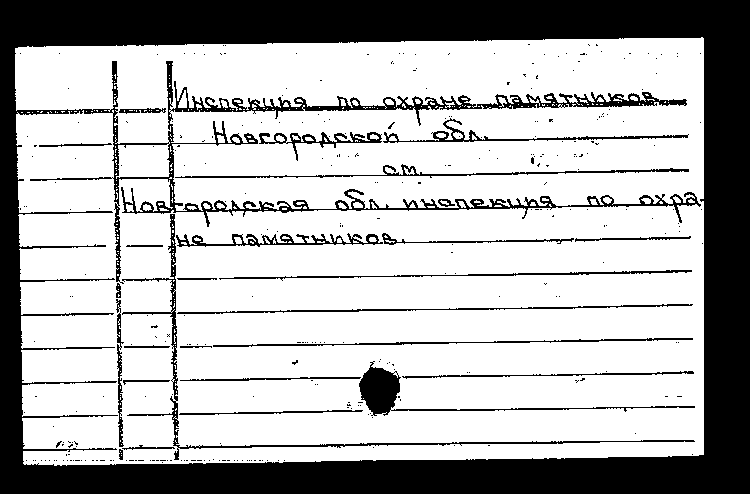 Инспекция по охране памятников
Новгородской обл.
см.
Новгородская обл. инспекция по охра-
не памятников.